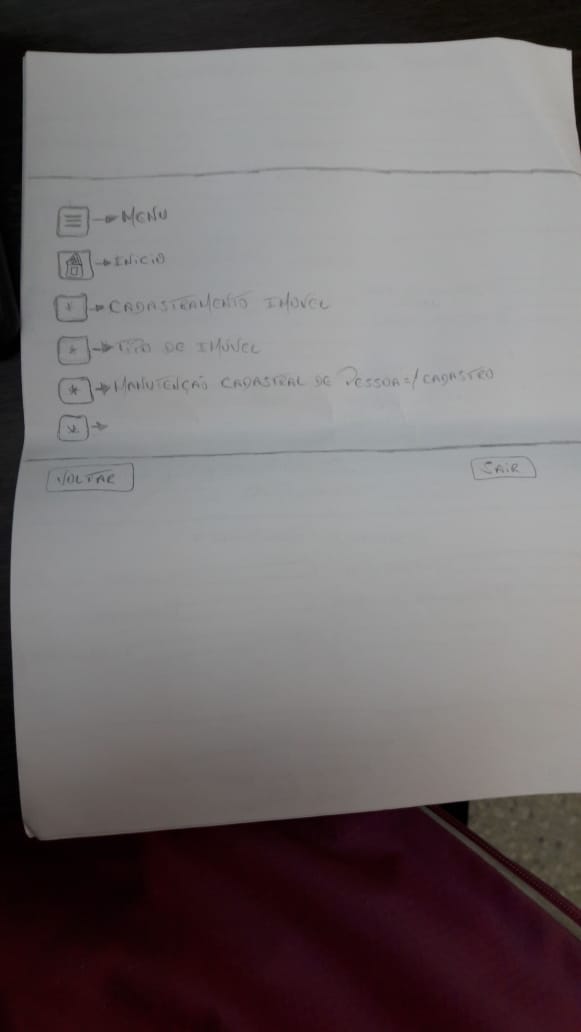 → MENU
→ INICIO
→ CADASTRAMENTO IMOVEL
* → TIPO DE IMÓVEL
* → MANUTENÇÃO CADASTRAL DE PESSOAS/CADASTRO
* →
VOLTAR SAIR